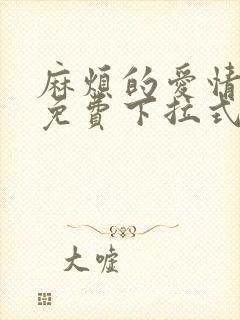 麻煩的愛情
免費下拉式
大嘘